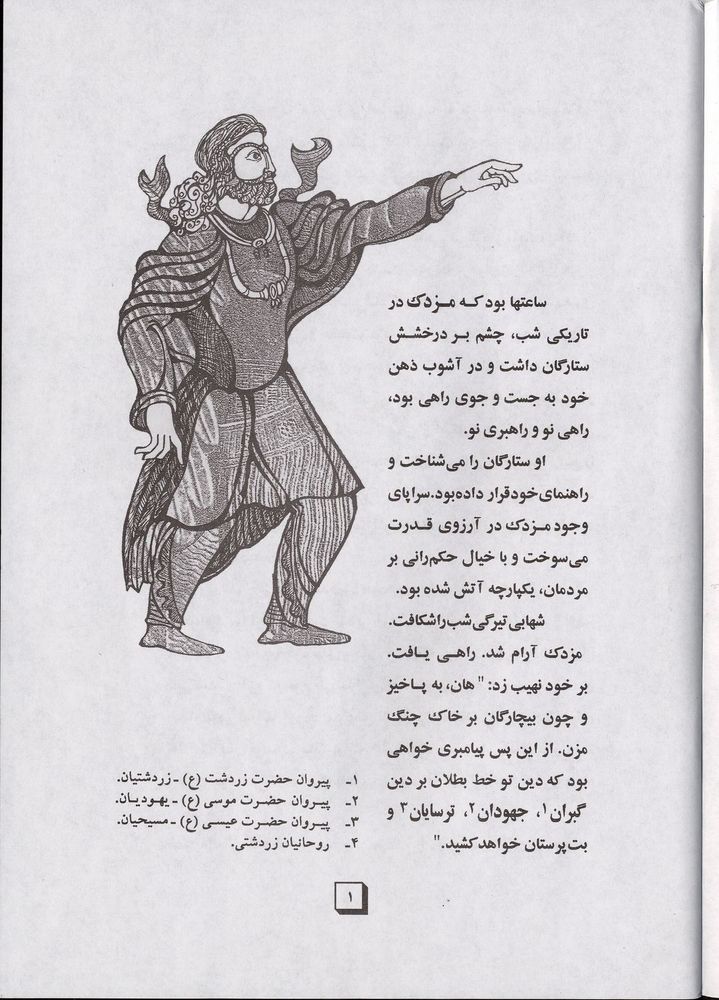 ساعتها بود که مزدک در
تاریکی شب، چشم بر درخشش
ستارگان داشت و در آشوب ذهن
خود به جست و جوی راهی بود،
راهی نو و راهبری نو.
او ستارگان را می‌شناخت و
راهنمای خود قرار داده بود. سراپای
وجود مزدک در آرزوی قدرت
می‌سوخت و با خیال حکم‌رانی بر
مردمان، یکپارچه آتش شده بود.
شهابی تیرگی شب را شکافت.
مزدک آرام شد. راهی یافت.
بر خود نهیب زد: " هان، به پاخیز
و چون بیچارگان بر خاک چنگ
مزن. از این پس پیامبری خواهی
بود که دین تو خط بطلان بر دین
گبران۱، جهودان۲، ترسایان۳ و
بت‌پرستان خواهد کشید."
۱ـ پیروان حضرت زردشت (ع) ـ زردشتیان.
۲ـ پیروان حضرت موسی (ع) ـ یهودیان.
۳ـ پیروان حضرت عیسی (ع) ـ مسیحیان.
۴ـ روحانیان زردشتی.
۱